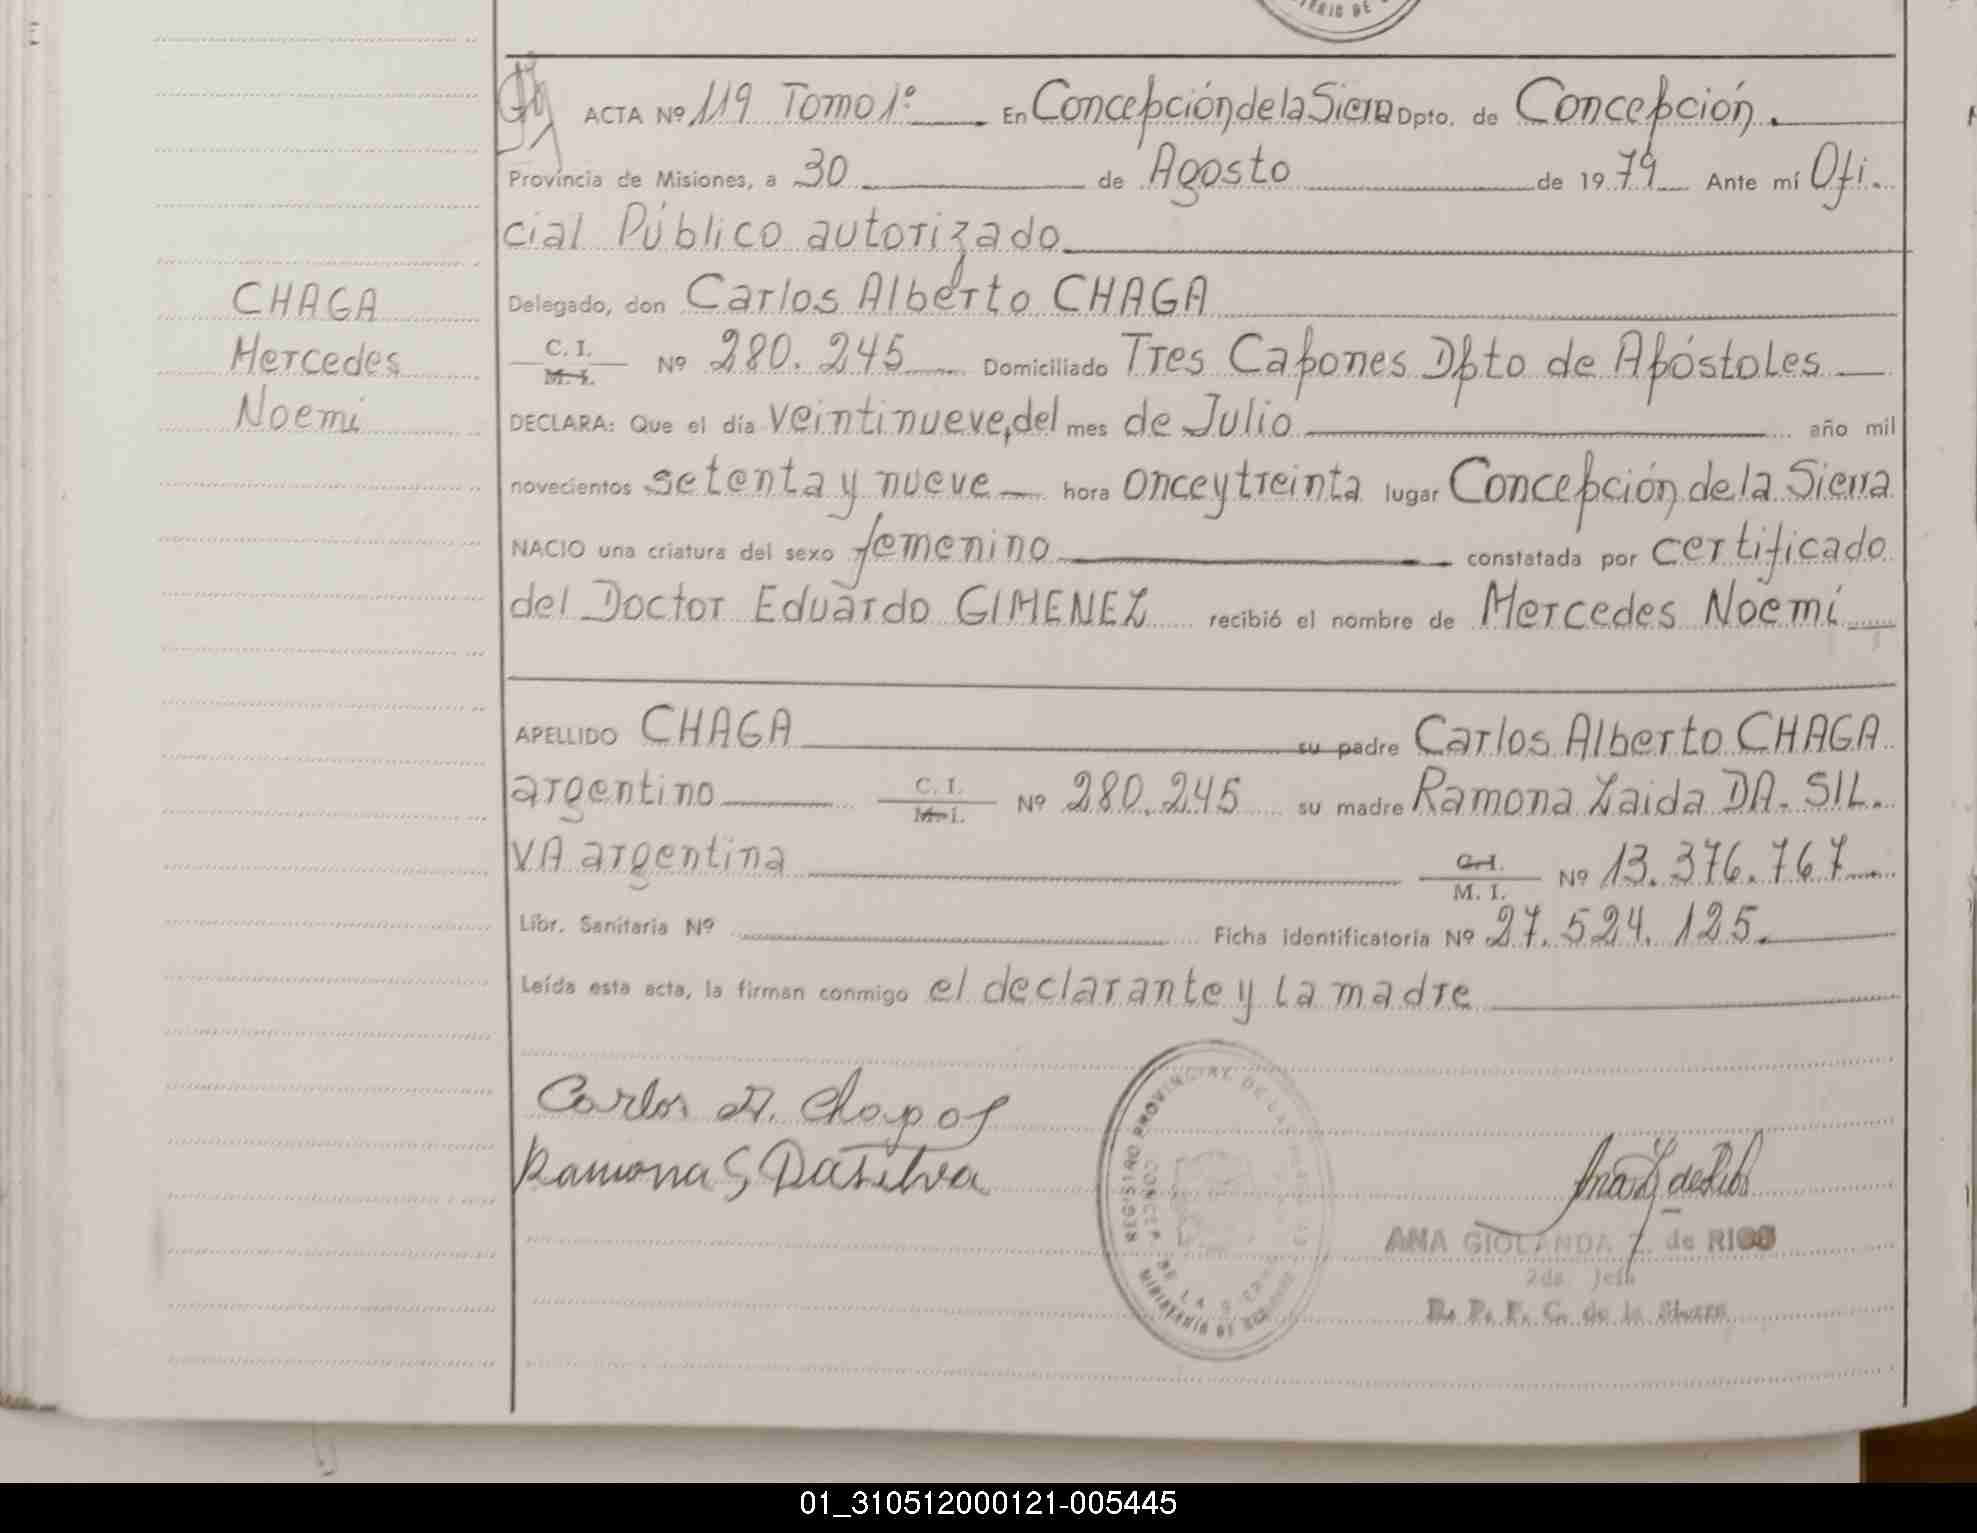 ERIO DE
ACTA Nº 119 Tomo 1º En Concepción de la Sierra Dpto. de Concepción.
Provincia de Misiones, a 30 de Agosto de 1979 Ante mí Ofi.
cial Público autorizado
Delegado, don Carlos Alberto CHAGA
C. I. M. I. Nº 280.245 Domiciliado Tres Capones Dpto de Apóstoles
DECLARA: Que el día veintinueve, del mes de Julio año mil
novecientos setenta y nueve hora once y treinta lugar Concepción de la Sierra
NACIO una criatura del sexo femenino constatada por certificado
del Doctor Eduardo GIMENEZ recibió el nombre de Mercedes Noemí
CHAGA
Mercedes
Noemí
APELLIDO CHAGA su padre Carlos Alberto CHAGA
argentino C. I. M. I. Nº 280.245 su madre Ramona Zaida DA. SIL.
VA argentina C. I. M. I. Nº 13.376.767
Libr. Sanitaria Nº Ficha identificatoria Nº 27.524.125.
Leída esta acta, la firman conmigo el declarante y la madre
Carlos A.
Ramona S Da Silva
REGISTRO PROVINCIAL DE LAS
CONCEP. DE LA SIERRA
MINISTERIO DE
Ana Z de Rios
ANA GIOLANDA Z. de RIOS
2da. Jefa
R. P. P. C. de la Sierra
01_310512000121-005445